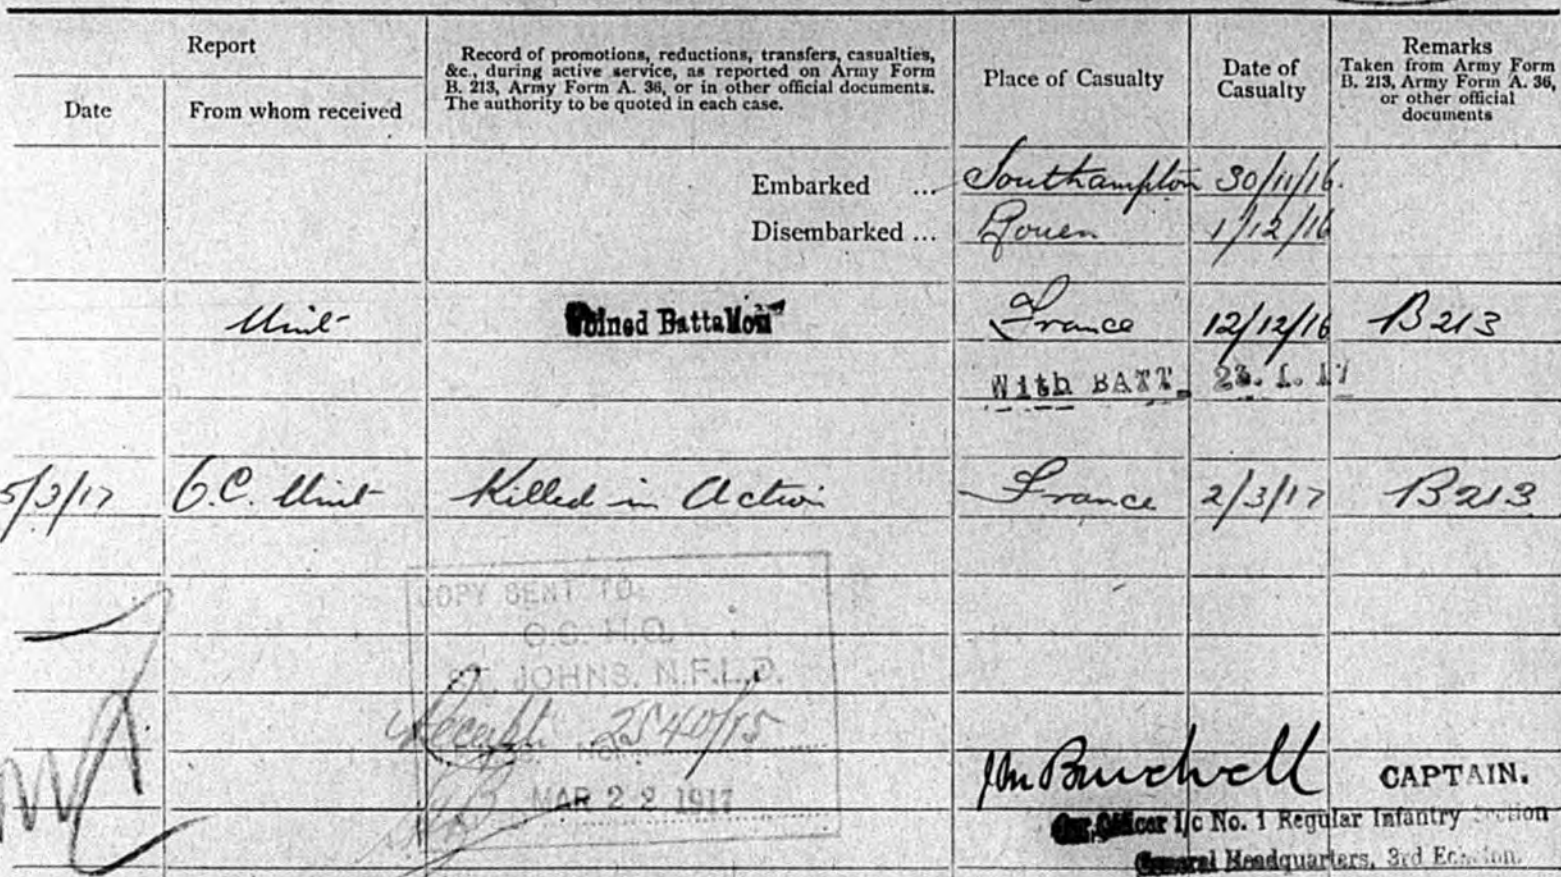 Report
Date
From whom received
Record of promotions, reductions, transfers, casualties,
&c., during active service, as reported on Army Form
B. 213, Army Form A. 36, or in other official documents.
The authority to be quoted in each case.
Place of Casualty
Date of
Casualty
Remarks
Taken from Army Form
B. 213, Army Form A. 36,
or other official
documents
Embarked ... Southampton 30/11/16.
Disembarked ... Rouen 1/12/16
Unit Joined Battalion France 12/12/16 B213
With BATT. 1. 17
5/3/17 O.C. Unit Killed in Action France 2/3/17 B213
COPY SENT TO
O.C. H.Q.
ST. JOHNS. N.F.L.D.
Receipt 2540/15
MAR 22 1917
CAPTAIN.
Officer i/c No. 1 Regular Infantry Section
General Headquarters, 3rd Echelon.